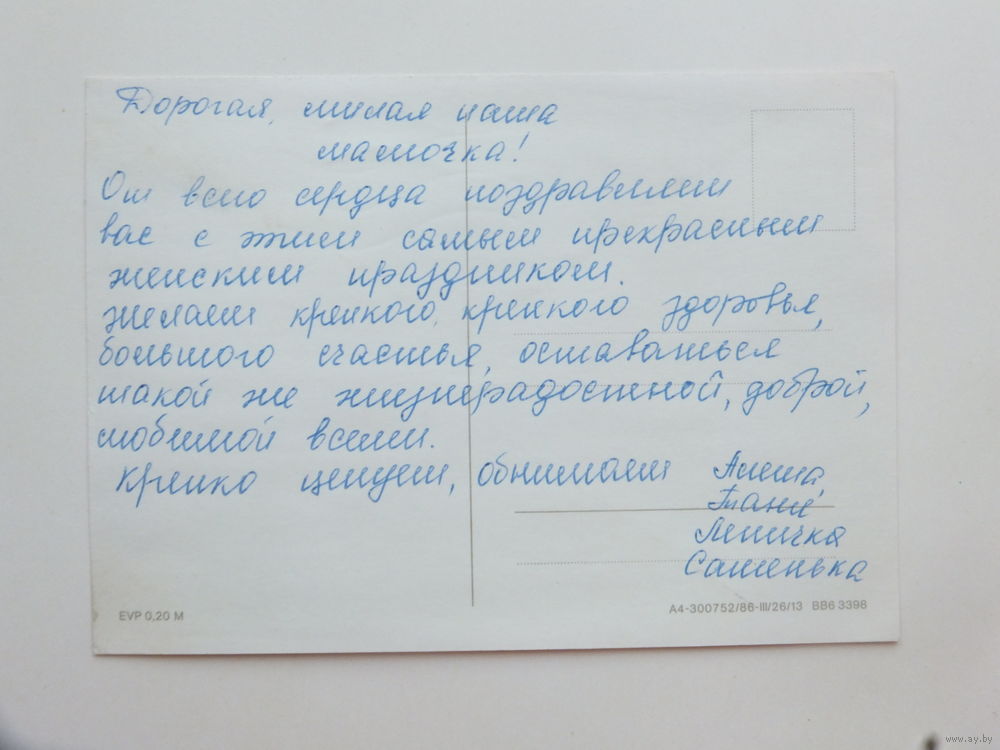 Дорогая, милая наша
мамочка!
От всего сердца поздравляем
вас с этим самым прекрасным
женским праздником.
желаем крепкого, крепкого здоровья,
большого счастья, оставаться
такой же жизнерадостной, доброй,
любимой всеми.
Крепко целуем, обнимаем Алеша
Таня
Леничка
Сашенька
EVP 0,20 M
A4-300752/86-III/26/13 BB6 3398
www.ay.by